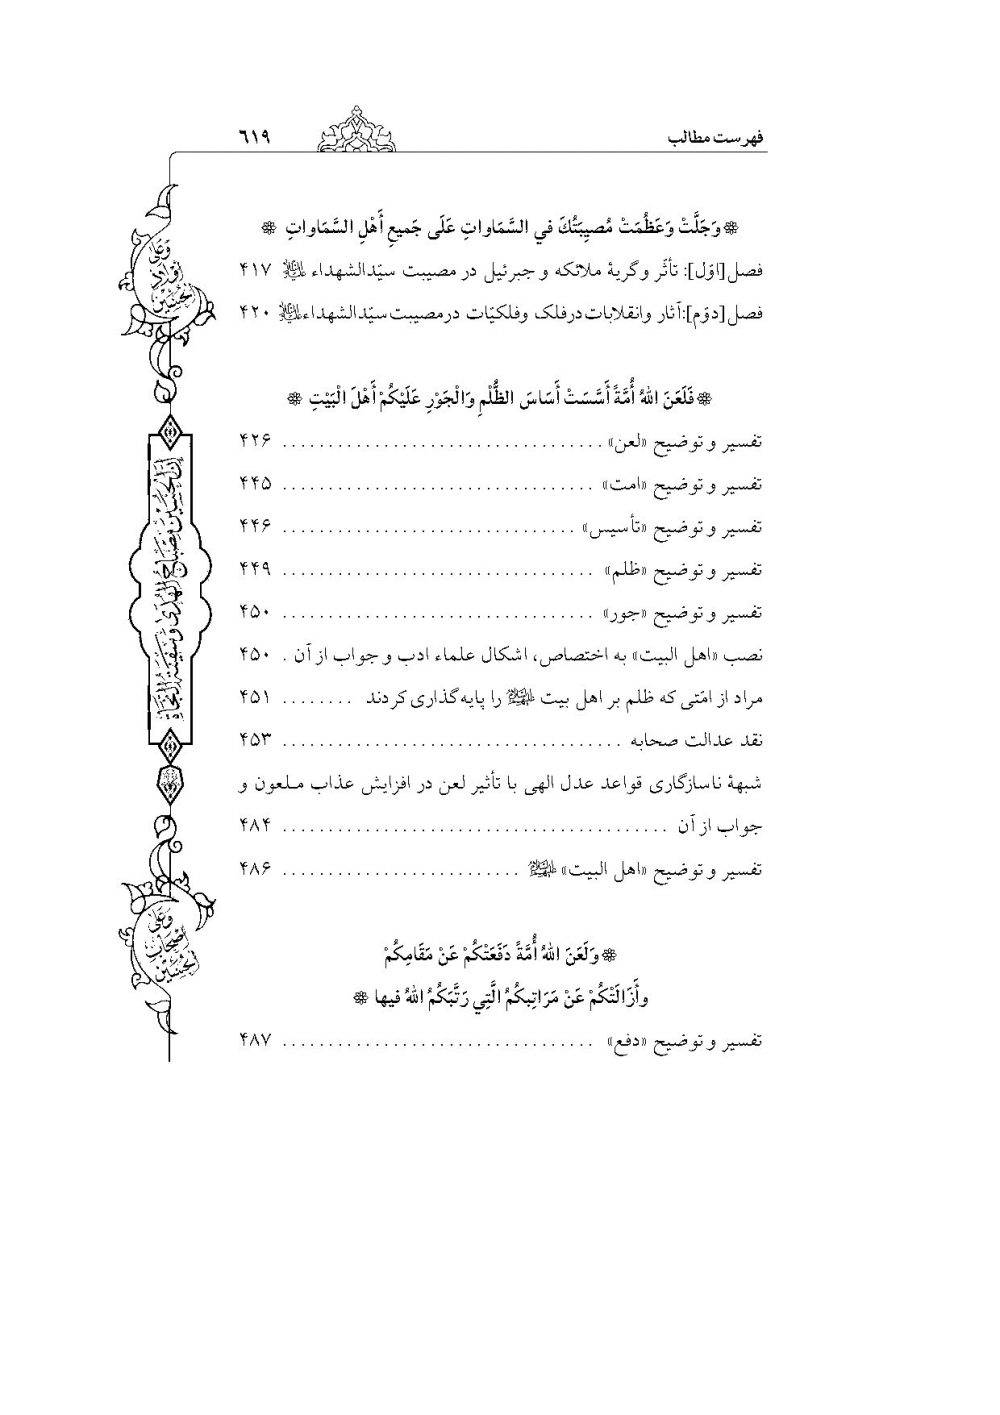 فهرست مطالب ۶۱۹
❁ وَجَلَّتْ وَعَظُمَتْ مُصِيبَتُكَ في السَّمَاواتِ عَلَى جَميعِ أَهْلِ السَّمَاواتِ ❁
فصل [اوّل]: تأثّر و گریهٔ ملائکه و جبرئیل در مصیبت سیّدالشهداء علیه‌السلام ۴۱۷
فصل [دوّم]: آثار وانقلابات در فلک وفلکیّات در مصیبت سیّدالشهداء علیه‌السلام ۴۲۰
❁ فَلَعَنَ اللهُ أُمَّةً أَسَّسَتْ أَسَاسَ الظُّلْمِ وَالْجَوْرِ عَلَيْكُمْ أَهْلَ الْبَيْتِ ❁
تفسیر و توضیح «لعن» . . . . . . . . . . . . . . . . . . . . ۴۲۶
تفسیر و توضیح «امت» . . . . . . . . . . . . . . . . . . . . ۴۴۵
تفسیر و توضیح «تأسیس» . . . . . . . . . . . . . . . . . . . . ۴۴۶
تفسیر و توضیح «ظلم» . . . . . . . . . . . . . . . . . . . . ۴۴۹
تفسیر و توضیح «جور» . . . . . . . . . . . . . . . . . . . . ۴۵۰
نصب «اهل البیت» به اختصاص، اشکال علماء ادب و جواب از آن . ۴۵۰
مراد از امّتی که ظلم بر اهل بیت علیهم‌السلام را پایه‌گذاری کردند . . . . . . . . ۴۵۱
نقد عدالت صحابه . . . . . . . . . . . . . . . . . . . . ۴۵۳
شبههٔ ناسازگاری قواعد عدل الهی با تأثیر لعن در افزایش عذاب ملعون و
جواب از آن . . . . . . . . . . . . . . . . . . . . ۴۸۴
تفسیر و توضیح «اهل البیت» علیهم‌السلام . . . . . . . . . . . . . . . . . . . . ۴۸۶
❁ وَلَعَنَ اللهُ أُمَّةً دَفَعَتْكُمْ عَنْ مَقَامِكُمْ
وأَزَالَتْكُمْ عَنْ مَرَاتِبِكُمُ الَّتِي رَتَّبَكُمُ اللهُ فيها ❁
تفسیر و توضیح «دفع» . . . . . . . . . . . . . . . . . . . . ۴۸۷
وعلى
أولاد
الحسين
إن الحسين مصباح الهدى وسفينة النجاة
وعلى
أصحاب
الحسين